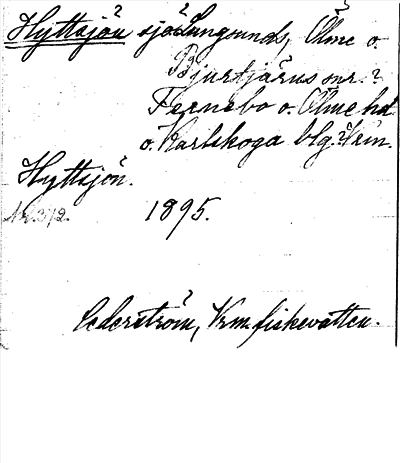 Hyttsjön sjö Långsunds, Ölme o.
Bjurtjärns snr.
Fernebo o. Ölme hd
o. Karlskoga blg. Vrm.
Hyttsjön.
Nr. 372.
1895.
Cederström, Vrm. fiskevatten.